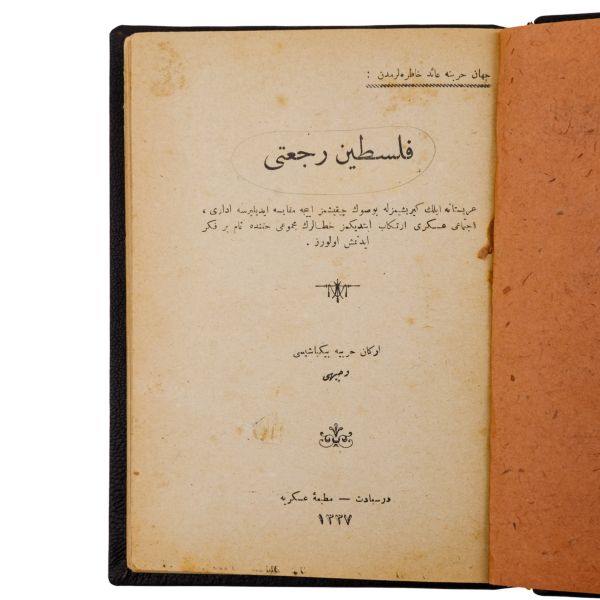 جهان حربنه عائد خاطره‌لرمدن :
فلسطین رجعتی
عربستانه ایلك كیریشمزله بوصوك چیقیشمز اییجه مقایسه ایدیلیرسه اداری ،
اجتماعی عسكری ارتكاب ایتدیكمز خطالرك مجموعی حقنده تام بر فكر
ایدنمش اولورز .
اركان حربیه بیكباشیسی
وجیهی
درسعادت — مطبعهٔ عسكریه
١٣٣٧